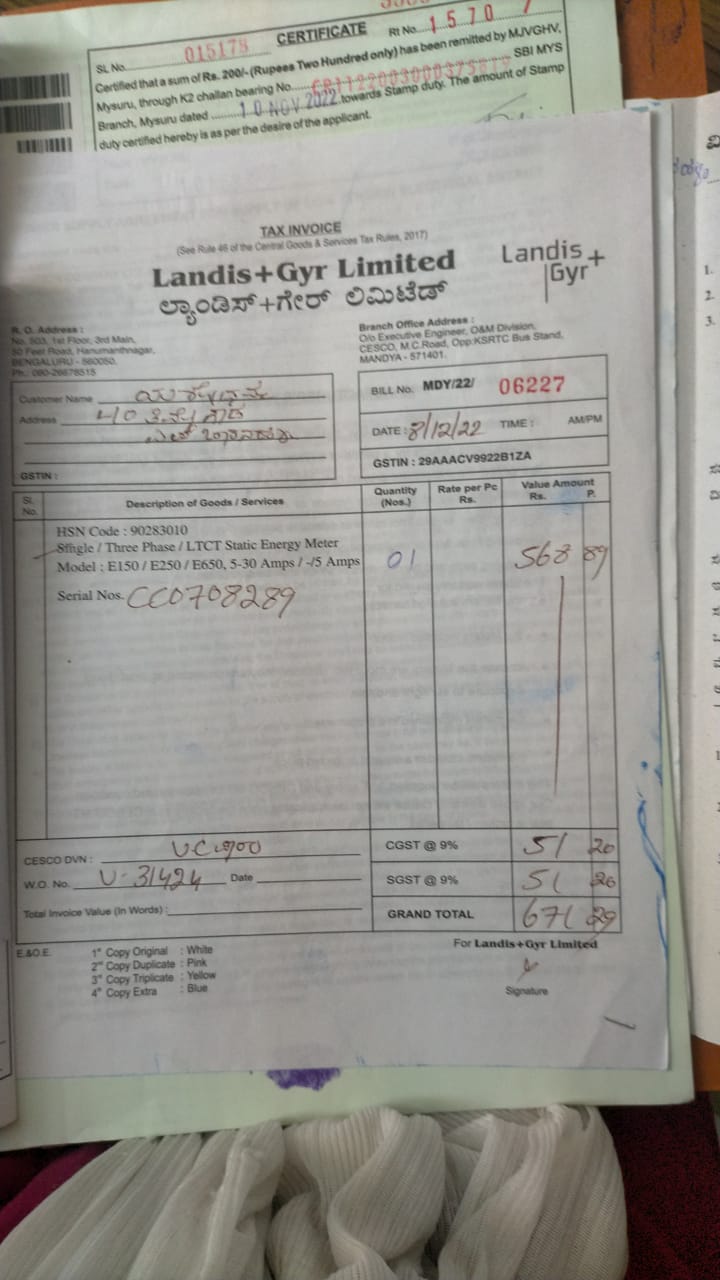 CERTIFICATE
SL No. 015178
Rt No. 1570
Certified that a sum of Rs. 200/- (Rupees Two Hundred only) has been remitted by MJVGHV,
Mysuru, through K2 challan bearing No. SBI MYS
Branch, Mysuru dated 10 NOV 2022 towards Stamp duty. The amount of Stamp
duty certified hereby is as per the desire of the applicant.
TAX INVOICE
(See Rule 46 of the Central Goods & Services Tax Rules, 2017)
Landis+Gyr Limited
Landis+
Gyr
ಲ್ಯಾಂಡಿಸ್+ಗೇರ್ ಲಿಮಿಟೆಡ್
R. O. Address :
No. 503, 1st Floor, 3rd Main,
50 Feet Road, Hanumanthnagar,
BENGALURU - 560050.
Ph.: 080-26678515
Branch Office Address :
O/o Executive Engineer, O&M Division,
CESCO, M.C.Road, Opp:KSRTC Bus Stand,
MANDYA - 571401.
Customer Name
Address
GSTIN :
BILL No. MDY/22/ 06227
DATE : 8/12/22 TIME : AM/PM
GSTIN : 29AAACV9922B1ZA
Sl. No. Description of Goods / Services Quantity (Nos.) Rate per Pc Rs. Value Amount Rs. P.
HSN Code : 90283010
Single / Three Phase / LTCT Static Energy Meter
Model : E150 / E250 / E650, 5-30 Amps / -/5 Amps 01 568 89
Serial Nos. CC0708289
CESCO DVN :
CGST @ 9% 51 20
W.O. No. U-31424 Date
SGST @ 9% 51 20
Total Invoice Value (In Words) :
GRAND TOTAL 671 29
E.&O.E.
1st Copy Original : White
2nd Copy Duplicate : Pink
3rd Copy Triplicate : Yellow
4th Copy Extra : Blue
For Landis+Gyr Limited
Signature
1.
2.
3.